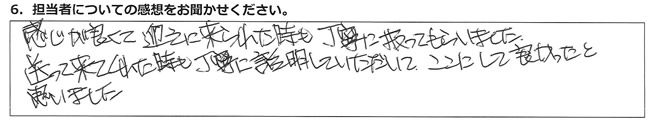 6．担当者についての感想をお聞かせください。
感じが良くて 迎えに来られた時も 丁寧に扱ってもらいました。
送って来てくれた時も丁寧に説明していただいて、ここにして良かったと
思いました